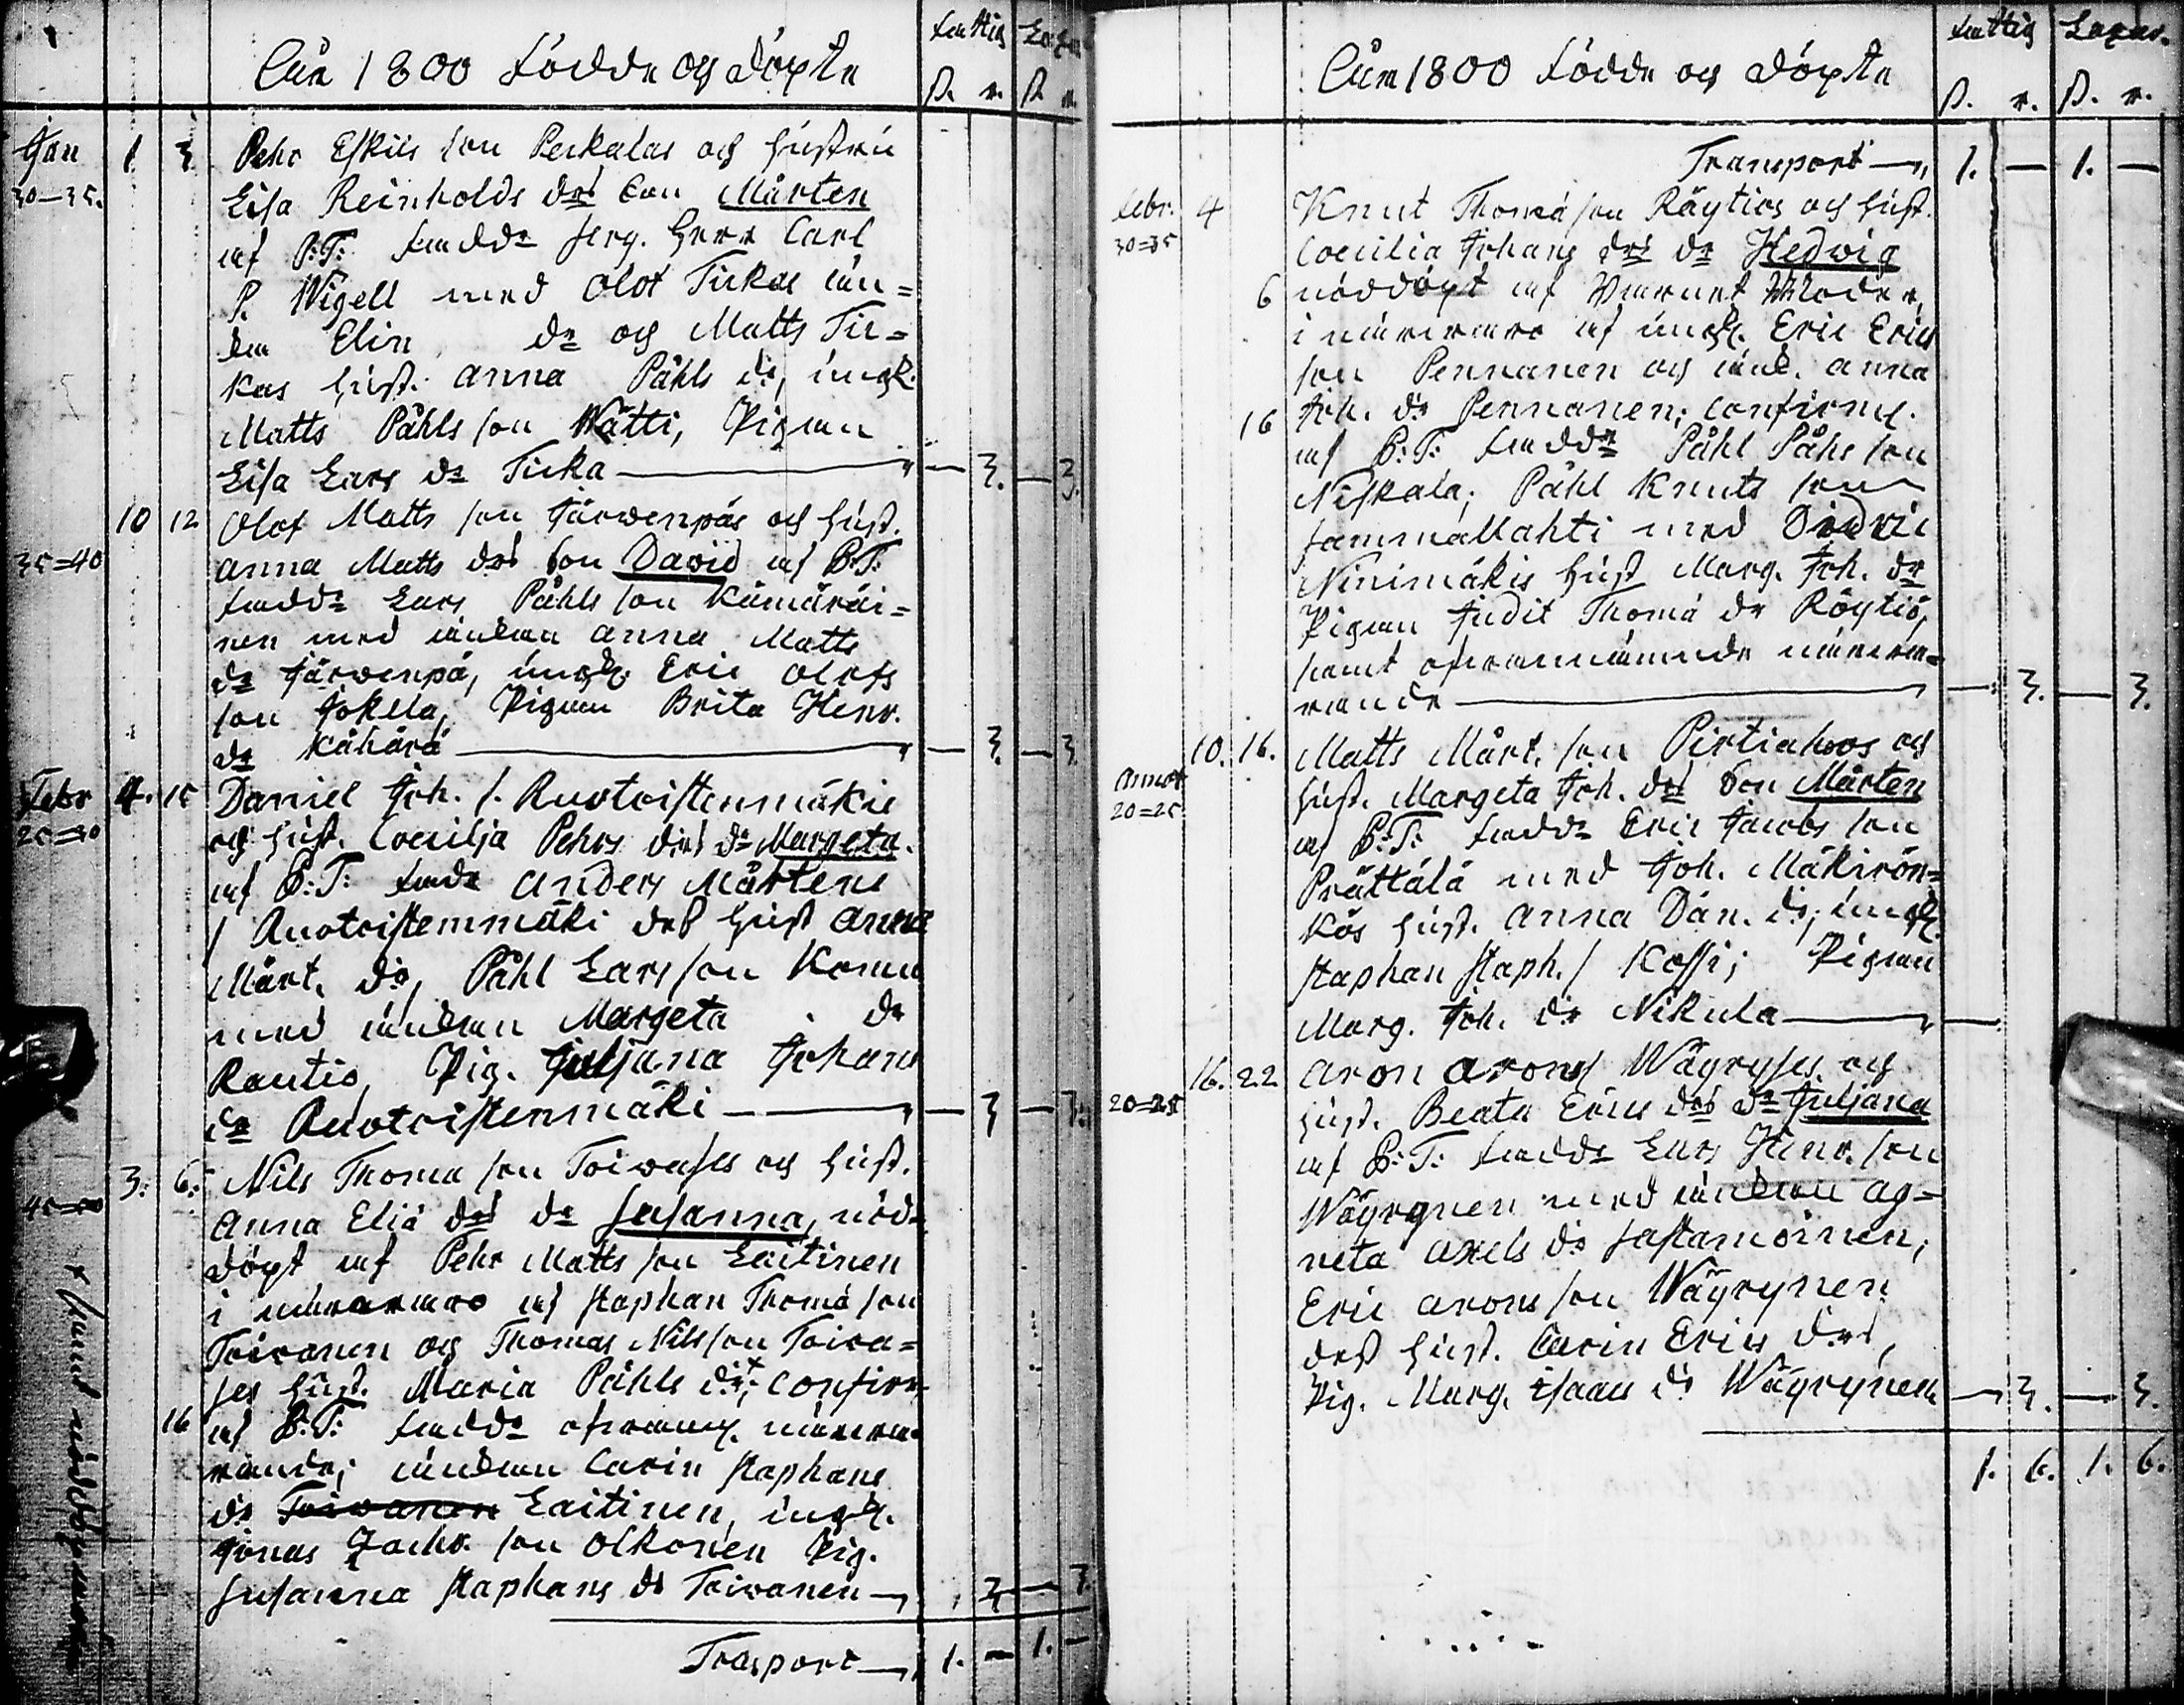 Åhr 1800 Födde og döpte
Fattig Lazar.
ß. r. ß. r.
Jan 1. 3. Pehr Eskils son Perkalas og hustru
30–35. Lisa Reinholds drs Son Mårten
af P:T: fadd. Serg. Herr Carl
P. Wigell med Olof Tickas än=
kan Elin dr og Matts Tic=
kas hust. Anna Påhls dr, ungk.
Matts Påhls son Wätti, Pigan
Lisa Lars dr Ticka — 3. — 3.
10 12 Olof Matts son Järwenpäs og hust.
35=40 Anna Matts drs Son David af P:T:
fadd. Lars Påhls son Kämäräi=
nen med änkan Anna Matts
dr Järwenpä, ungk. Eric Olofs
son Jokela, Pigan Brita Henr.
dr Kähärä — 3. — 3.
Febr 4. 15 Daniel Joh. s. Ruotoistenmäkis
25=30 og hust. Coecilja Pehrs drs dr Margeta.
af P:T: fadd Anders Mårtens
s Ruotoistenmäki dess hust Anna
Märt. dr, Påhl Lars son Komu
med änkan Margeta dr
Rautio, Pig. Juljana Johans
dr Ruotoistenmäki — 3 — 3.
3. 6. Nils Thoma son Toiwases og hust.
45=50 Anna Eliä drs dr Susanna, nöd=
döpt af Pehr Matts son Laitinen
i närwaro af Staphan Thomä son
Toiwanen og Thomas Nils son Toiwa=
ses hust. Maria Påhls dr; + confirm.
16 af P:T: fadd. ofwann. närwa=
rande; änkan Carin Staphans
dr Toiwanen Laitinen, ungk.
Jonas Zachr. son Olkonen Pig.
Susanna Staphans dr Toiwanen — 3 — 3.
Trasport — 1. — 1. —
+ Qwinnl. nöddöpt
Åhr 1800 Födde og döpte
Fattig Lazar.
ß. r. ß. r.
Transport — 1. — 1. —
Febr. 4 Knut Thomä son Räytiös og hust.
30=35 Coecilia Johans drs dr Hedwig
6 nöddöpt af Barnet Moder,
i närwaro af ungk. Eric Erics
son Pennanen og änk. Anna
16 Joh. dr Pennanen; confirm.
af P:T: fadd. Påhl Påhs son
Niskala; Påhl Knuts son
Sammallahti med Didric
Niinimäkis hust Marg. Joh. dr
Pigan Judit Thomä dr Röytiö,
samt ofwannämnde närwa=
rande — 3. — 3.
10. 16. Matts Märt. son Pirtiahos og
Annot hust. Margeta Joh. drs Son Mårten
20=25 af P:T: fadd. Eric Jacobs son
Prättälä med Joh. Mäkirön=
kös hust. Anna Dan. dr; ungk.
Staphan Staph. s Kossi; Pigan
Marg. Joh. dr Nikula —
16. 22 Aron Arons s Wäyryses og
20=25 hust. Beata Erics drs dr Juljana
af P:T: fadd. Lars Henr. son
Wäyrynen med änkan Ag=
neta Axels dr Sastamoinen;
Eric Arons son Wäyrynen
dess hust. Carin Erics drs,
Pig. Marg. Isaacs dr Wäyrynen — 3. — 3.
1. 6. 1. 6.